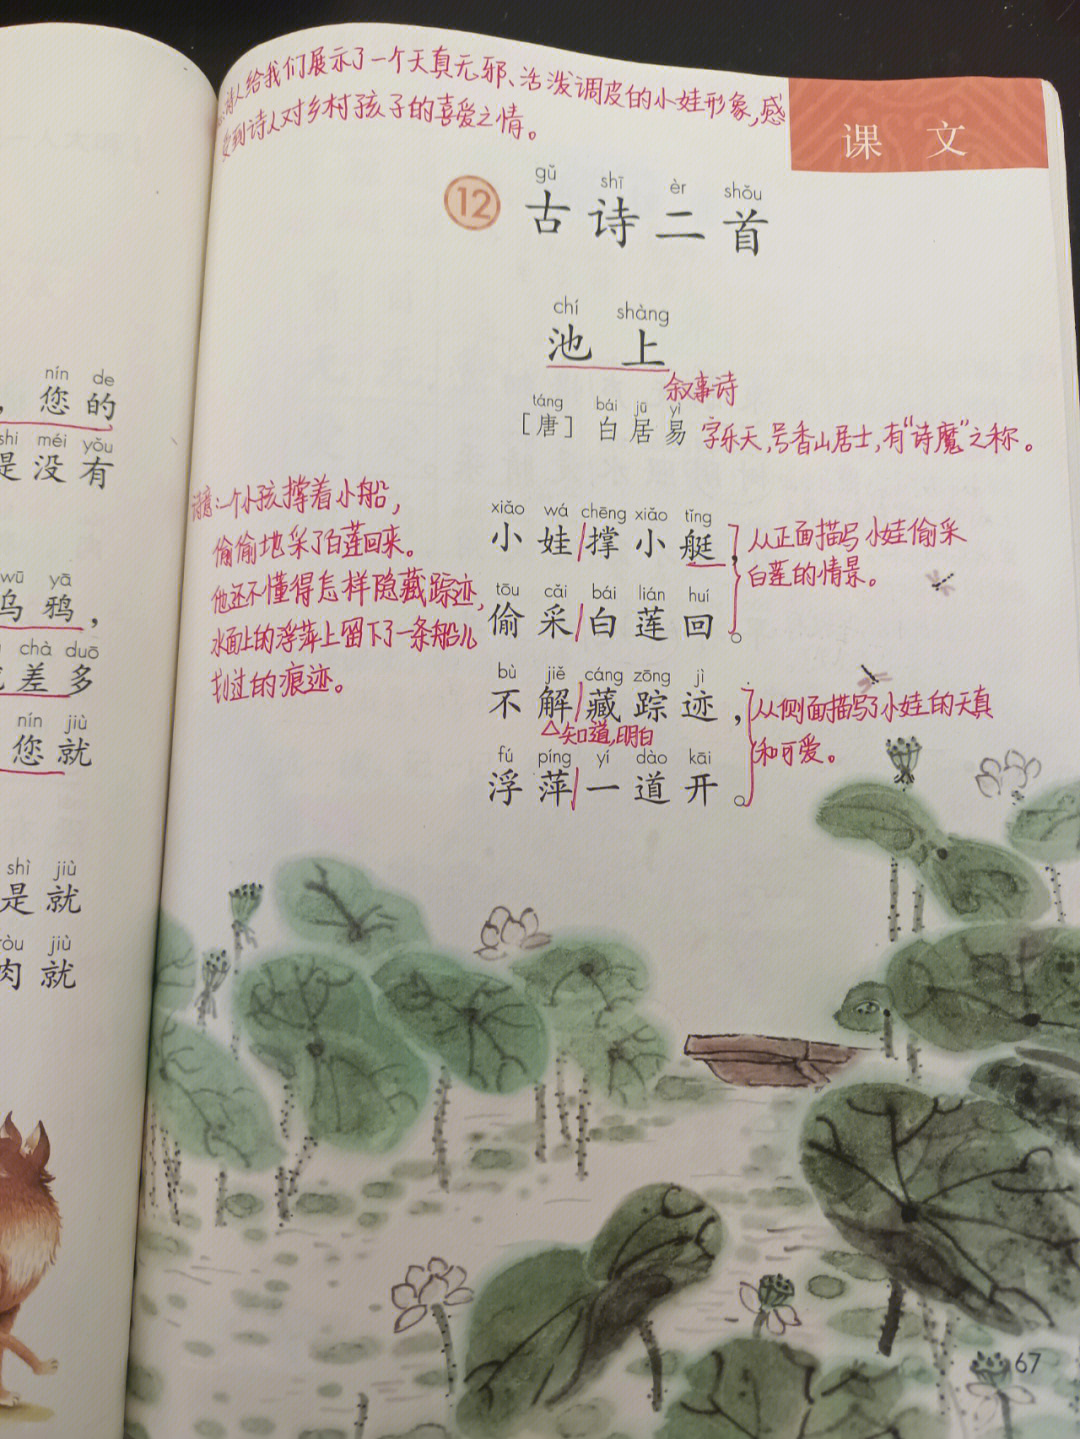 诗人给我们展示了一个天真无邪、活泼调皮的小娃形象，感
受到诗人对乡村孩子的喜爱之情。
课 文
gǔ shī èr shǒu
12 古诗二首
chí shàng
池 上
叙事诗
táng bái jū yì
［唐］白居易 字乐天，号香山居士，有“诗魔”之称。
诗意：一个小孩撑着小船，
偷偷地采了白莲回来。
他还不懂得怎样隐藏踪迹，
水面上的浮萍上留下了一条船儿
划过的痕迹。
xiǎo wá chēng xiǎo tǐng
小娃/撑小艇，
tōu cǎi bái lián huí
偷采/白莲回。
从正面描写小娃偷采
白莲的情景。
bù jiě cáng zōng jì
不解/藏踪迹，
△知道，明白
fú píng yí dào kāi
浮萍/一道开。
从侧面描写了小娃的天真
和可爱。
67
nín de
，您的
shi méi yǒu
是没有
wū yā
乌鸦，
chà duō
差多
nín jiù
您就
shì jiù
是就
ròu jiù
肉就